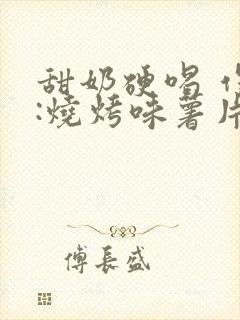 甜奶硬唱
:燒烤味薯片
傅長盛